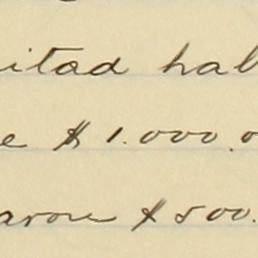 itad hal
e $ 1.000.0
aron $ 500.